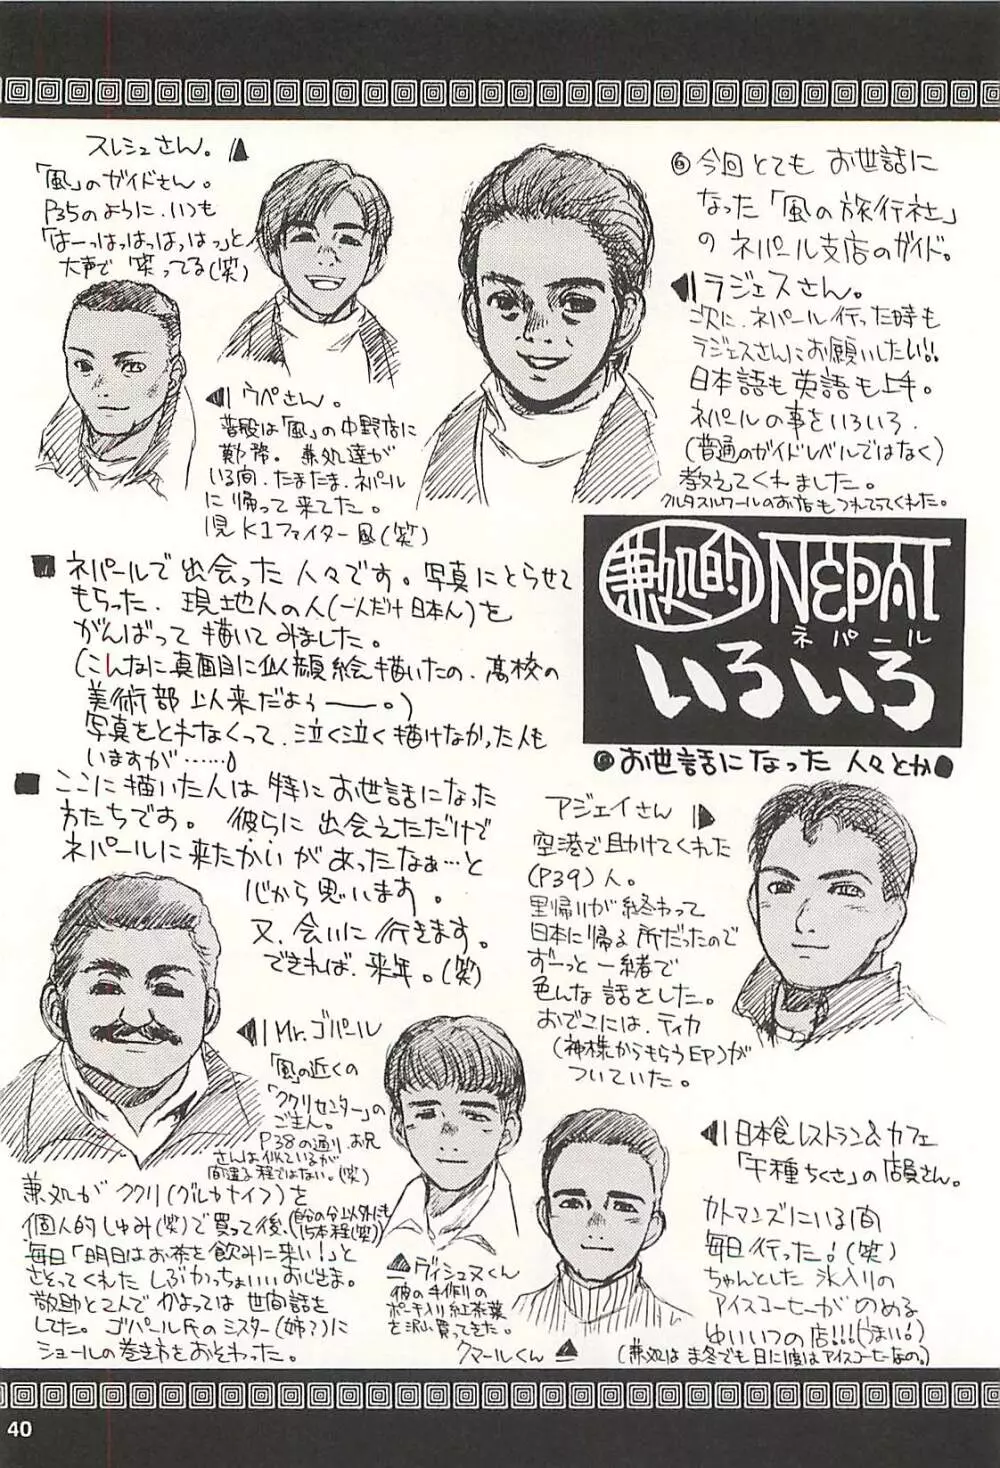 ◎今回とても お世話に
なった「風の旅行社」
の ネパール支店のガイド。
ラジェスさん。
次に、ネパール行った時も
ラジェスさんにお願いしたい!!
日本語も英語も上手。
ネパールの事をいろいろ、
(普通のガイドレベルではなく)
教えてくれました。
クルタスルワールのお店もつれてってくれた。
スレシュさん。
「風」のガイドさん。
P35のように、いつも
「はーっはっはっはっはっ」と
大声で 笑ってる(笑)
ウペさん。
普段は「風」の中野店に
勤務。兼処達が
いる間、たまたま、ネパール
に帰って来てた。
K1ファイター風(笑)
兼処的 NEPAL
ネパール
いろいろ
お世話になった 人々とか
■ネパールで出会った人々です。写真にとらせて
もらった、現地人の人(一人だけ日本人)を
がんばって描いてみました。
(こんなに真面目に似顔絵描いたの、高校の
美術部以来だよぅー。)
写真をとれなくって、泣く泣く描けなかった人も
いますが……♪
■ここに描いた人は特にお世話になった
方たちです。彼らに出会えただけで
ネパールに来たかいがあったなぁ…と
心から思います。
又、会いに行きます。
できれば、来年。(笑)
アジェイさん
空港で助けてくれた
(P39)人。
里帰りが終わって
日本に帰る所だったので
ずーっと一緒で
色んな話をした。
おでこには、ティカ
(神様からもらう印)が
ついていた。
Mr.ゴパール
「風」の近くの
「ククリセンター」の
ご主人。
P38の通り、お兄
さんは似ているが
間違える程ではない。(笑)
兼処がククリ(グルカナイフ)を
個人的しゅみ(笑)で買って後、
(自分の分以外にも
15本程(笑))
毎日「明日はお茶を飲みに来い!」と
さそってくれたしぶかっちょいいおじさま。
敬助と2人でかよっては世間話を
してた。ゴパール氏のミスター(姉?)に
ショールの巻き方をおそわった。
ヴィシュヌくん
彼の手作りの
ポーチ入り紅茶葉
を沢山買ってきた。
クマールくん
日本食レストラン&カフェ
「千種ちくさ」の店員さん。
カトマンズにいる間
毎日行った!(笑)
ちゃんとした氷入りの
アイスコーヒーがのめる
ゆいいつの店!!!(うまい!)
(兼処は真冬でも日に1度はアイスコーヒーなの。)
40